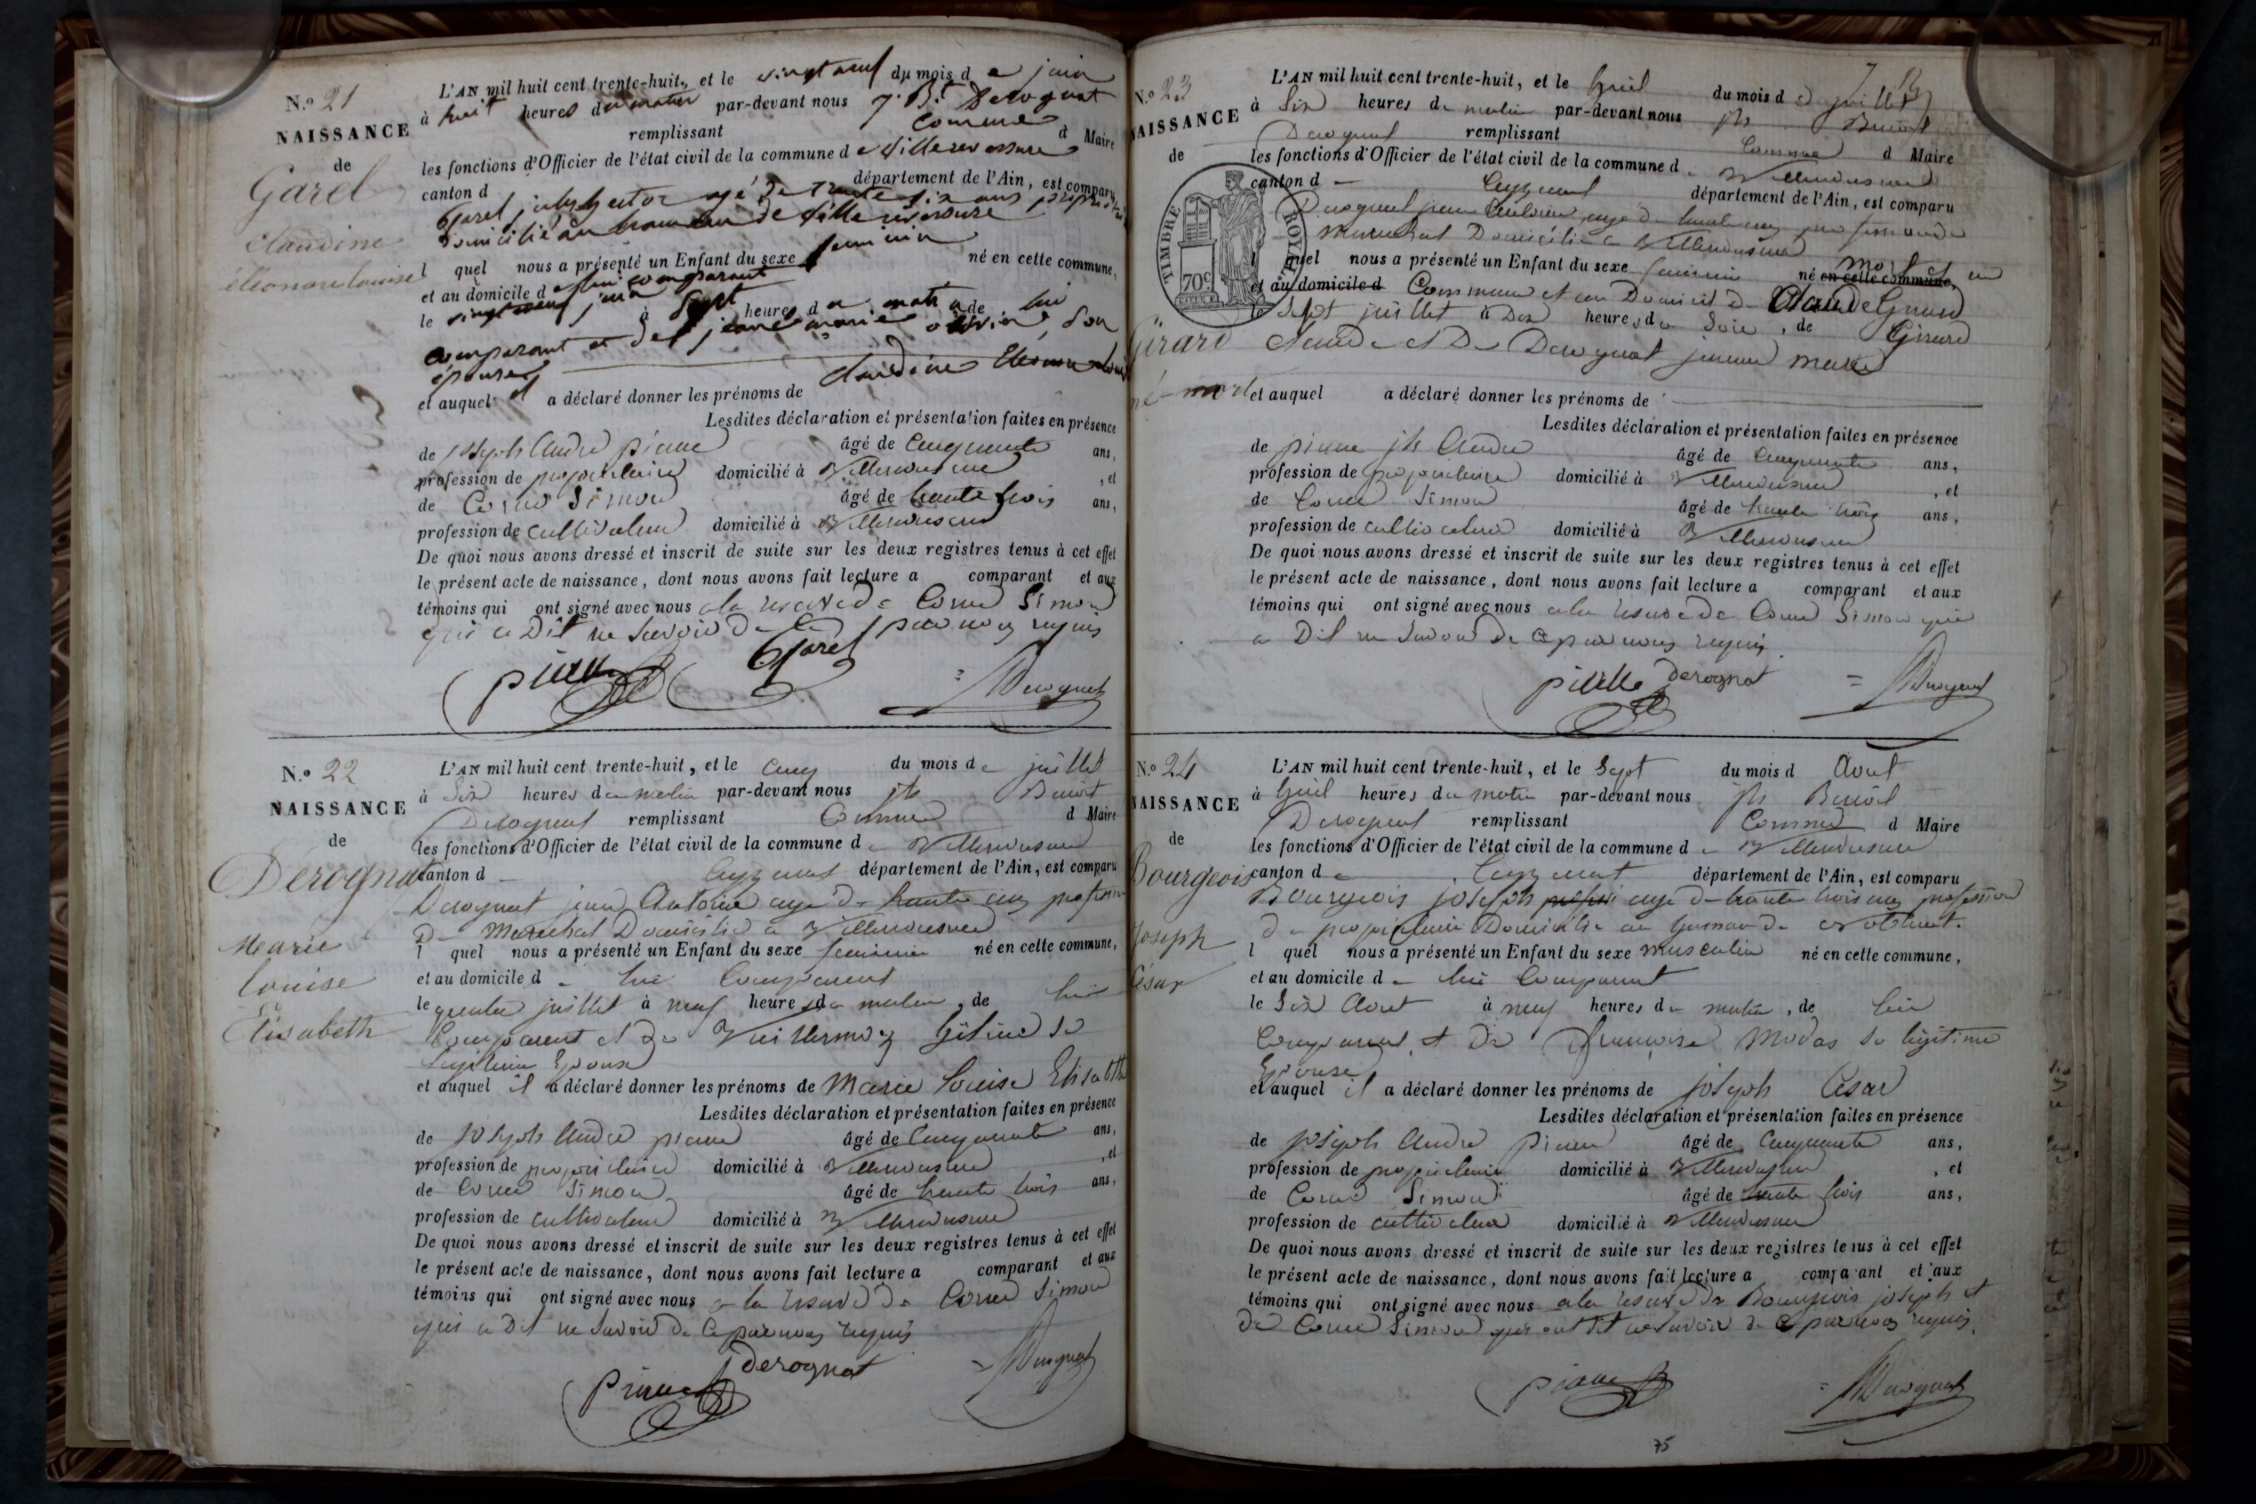 N.o 21
NAISSANCE
de
Garel
claudine
éléonore louise
L'AN mil huit cent trente-huit, et le vingt neuf du mois d e juin
à huit heures du matin par-devant nous J. Bt Derognat
remplissant comme d Maire
les fonctions d'Officier de l'état civil de la commune d e Villereversure
canton d département de l'Ain, est comparu
Garel joseph hector agé de trente six ans
domicilié au hameau de Villereversure
l quel nous a présenté un Enfant du sexe feminin né en cette commune,
et au domicile d e lui comparant
le vingt neuf juin à sept heures d u matin de lui
comparant et de jeanne marie olivier, son
épouse
et auquel il a déclaré donner les prénoms de claudine Eleonore louise
Lesdites déclaration et présentation faites en présence
de Joseph André pianne âgé de Cinquante ans,
profession de propriétaire domicilié à Villereversure , et
de Corne Simon âgé de trente trois ans,
profession de cultivateur domicilié à Villereversure
De quoi nous avons dressé et inscrit de suite sur les deux registres tenus à cet effet
le présent acte de naissance, dont nous avons fait lecture a comparant et aux
témoins qui ont signé avec nous a la reserve de Corne Simon
qui a Dit ne Savoir de ce par nous requis
Garel Derognat
N.o 22
NAISSANCE
de
Derognat
Marie
Louise
Elisabeth
L'AN mil huit cent trente-huit, et le cinq du mois d e juillet
à Six heures d u matin par-devant nous jh Benoit
Derognat remplissant Comme d Maire
les fonctions d'Officier de l'état civil de la commune d e Villereversure
canton d e Ceyzeriat département de l'Ain, est comparu
Derognat jean Antoine agé de trente ans profession
De Marechal Domicilié a Villereversure
l quel nous a présenté un Enfant du sexe feminin né en cette commune,
et au domicile d e lui Comparant
le quatre juillet à neuf heures d u matin, de lui
Comparant et de Vuillermoz sa
legitime Epouse
et auquel il a déclaré donner les prénoms de Marie Louise Elisabeth
Lesdites déclaration et présentation faites en présence
de Joseph André pianne âgé de Cinquante ans,
profession de propriétaire domicilié à Villereversure , et
de Corne Simon âgé de trente trois ans,
profession de cultivateur domicilié à Villereversure
De quoi nous avons dressé et inscrit de suite sur les deux registres tenus à cet effet
le présent acte de naissance, dont nous avons fait lecture a comparant et aux
témoins qui ont signé avec nous a la reserve de Corne Simon
qui a Dit ne Savoir de Ce par nous requis
derognat Derognat
N.o 23
NAISSANCE
de
TIMBRE ROYAL
70 c
Girard
né mort
L'AN mil huit cent trente-huit, et le huit du mois d e juillet
à Six heures d u matin par-devant nous jh Benoit
Derognat remplissant Comme d Maire
les fonctions d'Officier de l'état civil de la commune d e Villereversure
canton d e Ceyzeriat département de l'Ain, est comparu
Derognat jean Antoine agé de trente ans profession de
Marechal Domicilié a Villereversure
l quel nous a présenté un Enfant du sexe feminin né en cette commune, mort en
et au domicile d Commune et au Domicile de Claude Girard
le Sept juillet à Dix heures d u Soir, de Girard
claude et De Derognat jeanne marie
et auquel a déclaré donner les prénoms de
Lesdites déclaration et présentation faites en présence
de pianne jh André âgé de Cinquante ans,
profession de propriétaire domicilié à Villereversure , et
de Corne Simon âgé de trente trois ans,
profession de cultivateur domicilié à Villereversure
De quoi nous avons dressé et inscrit de suite sur les deux registres tenus à cet effet
le présent acte de naissance, dont nous avons fait lecture a comparant et aux
témoins qui ont signé avec nous a la reserve de Corne Simon qui
a Dit ne Savoir de ce par nous requis
derognat Derognat
N.o 24
NAISSANCE
de
Bourgeois
Joseph
César
L'AN mil huit cent trente-huit, et le Sept du mois d Aout
à huit heures d u matin par-devant nous jh Benoit
Derognat remplissant Comme d Maire
les fonctions d'Officier de l'état civil de la commune d e Villereversure
canton d e Ceyzeriat département de l'Ain, est comparu
Bourgeois joseph agé de trente trois ans profession
de propriétaire Domicilié au hameau de
l quel nous a présenté un Enfant du sexe masculin né en cette commune,
et au domicile d e lui Comparant
le Six Aout à neuf heures d u matin, de lui
Comparant et De françoise Modas sa légitime
Epouse
et auquel il a déclaré donner les prénoms de joseph César
Lesdites déclaration et présentation faites en présence
de joseph André pianne âgé de Cinquante ans,
profession de propriétaire domicilié à Villereversure , et
de Corne Simon âgé de trente trois ans,
profession de cultivateur domicilié à Villereversure
De quoi nous avons dressé et inscrit de suite sur les deux registres tenus à cet effet
le présent acte de naissance, dont nous avons fait lecture a comparant et aux
témoins qui ont signé avec nous a la reserve de Bourgeois joseph et
de Corne Simon qui ont dit ne Savoir de ce par nous requis.
Derognat
75